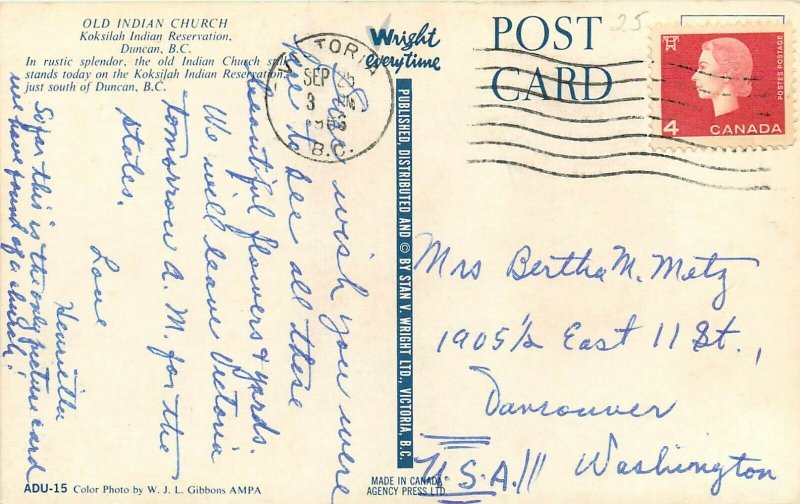 OLD INDIAN CHURCH
Koksilah Indian Reservation,
Duncan, B.C.
In rustic splendor, the old Indian Church still
stands today on the Koksilah Indian Reservation,
just south of Duncan, B.C.
wish you were
here to see all these
beautiful flowers & yards.
We will leave Victoria
tomorrow A.M. for the
states.
Love
Henrietta
So far this is the only picture card
we have found of a church!
ADU-15 Color Photo by W. J. L. Gibbons AMPA
Wright
everytime
PUBLISHED, DISTRIBUTED AND © BY STAN V. WRIGHT LTD., VICTORIA, B.C.
MADE IN CANADA
AGENCY PRESS LTD.
VICTORIA
SEP
3
B.C.
POST
CARD
25
POSTES POSTAGE
4 CANADA
Mrs Bertha M. Metz
1905½ East 11 St.,
Vancouver
Washington
U.S.A.!!